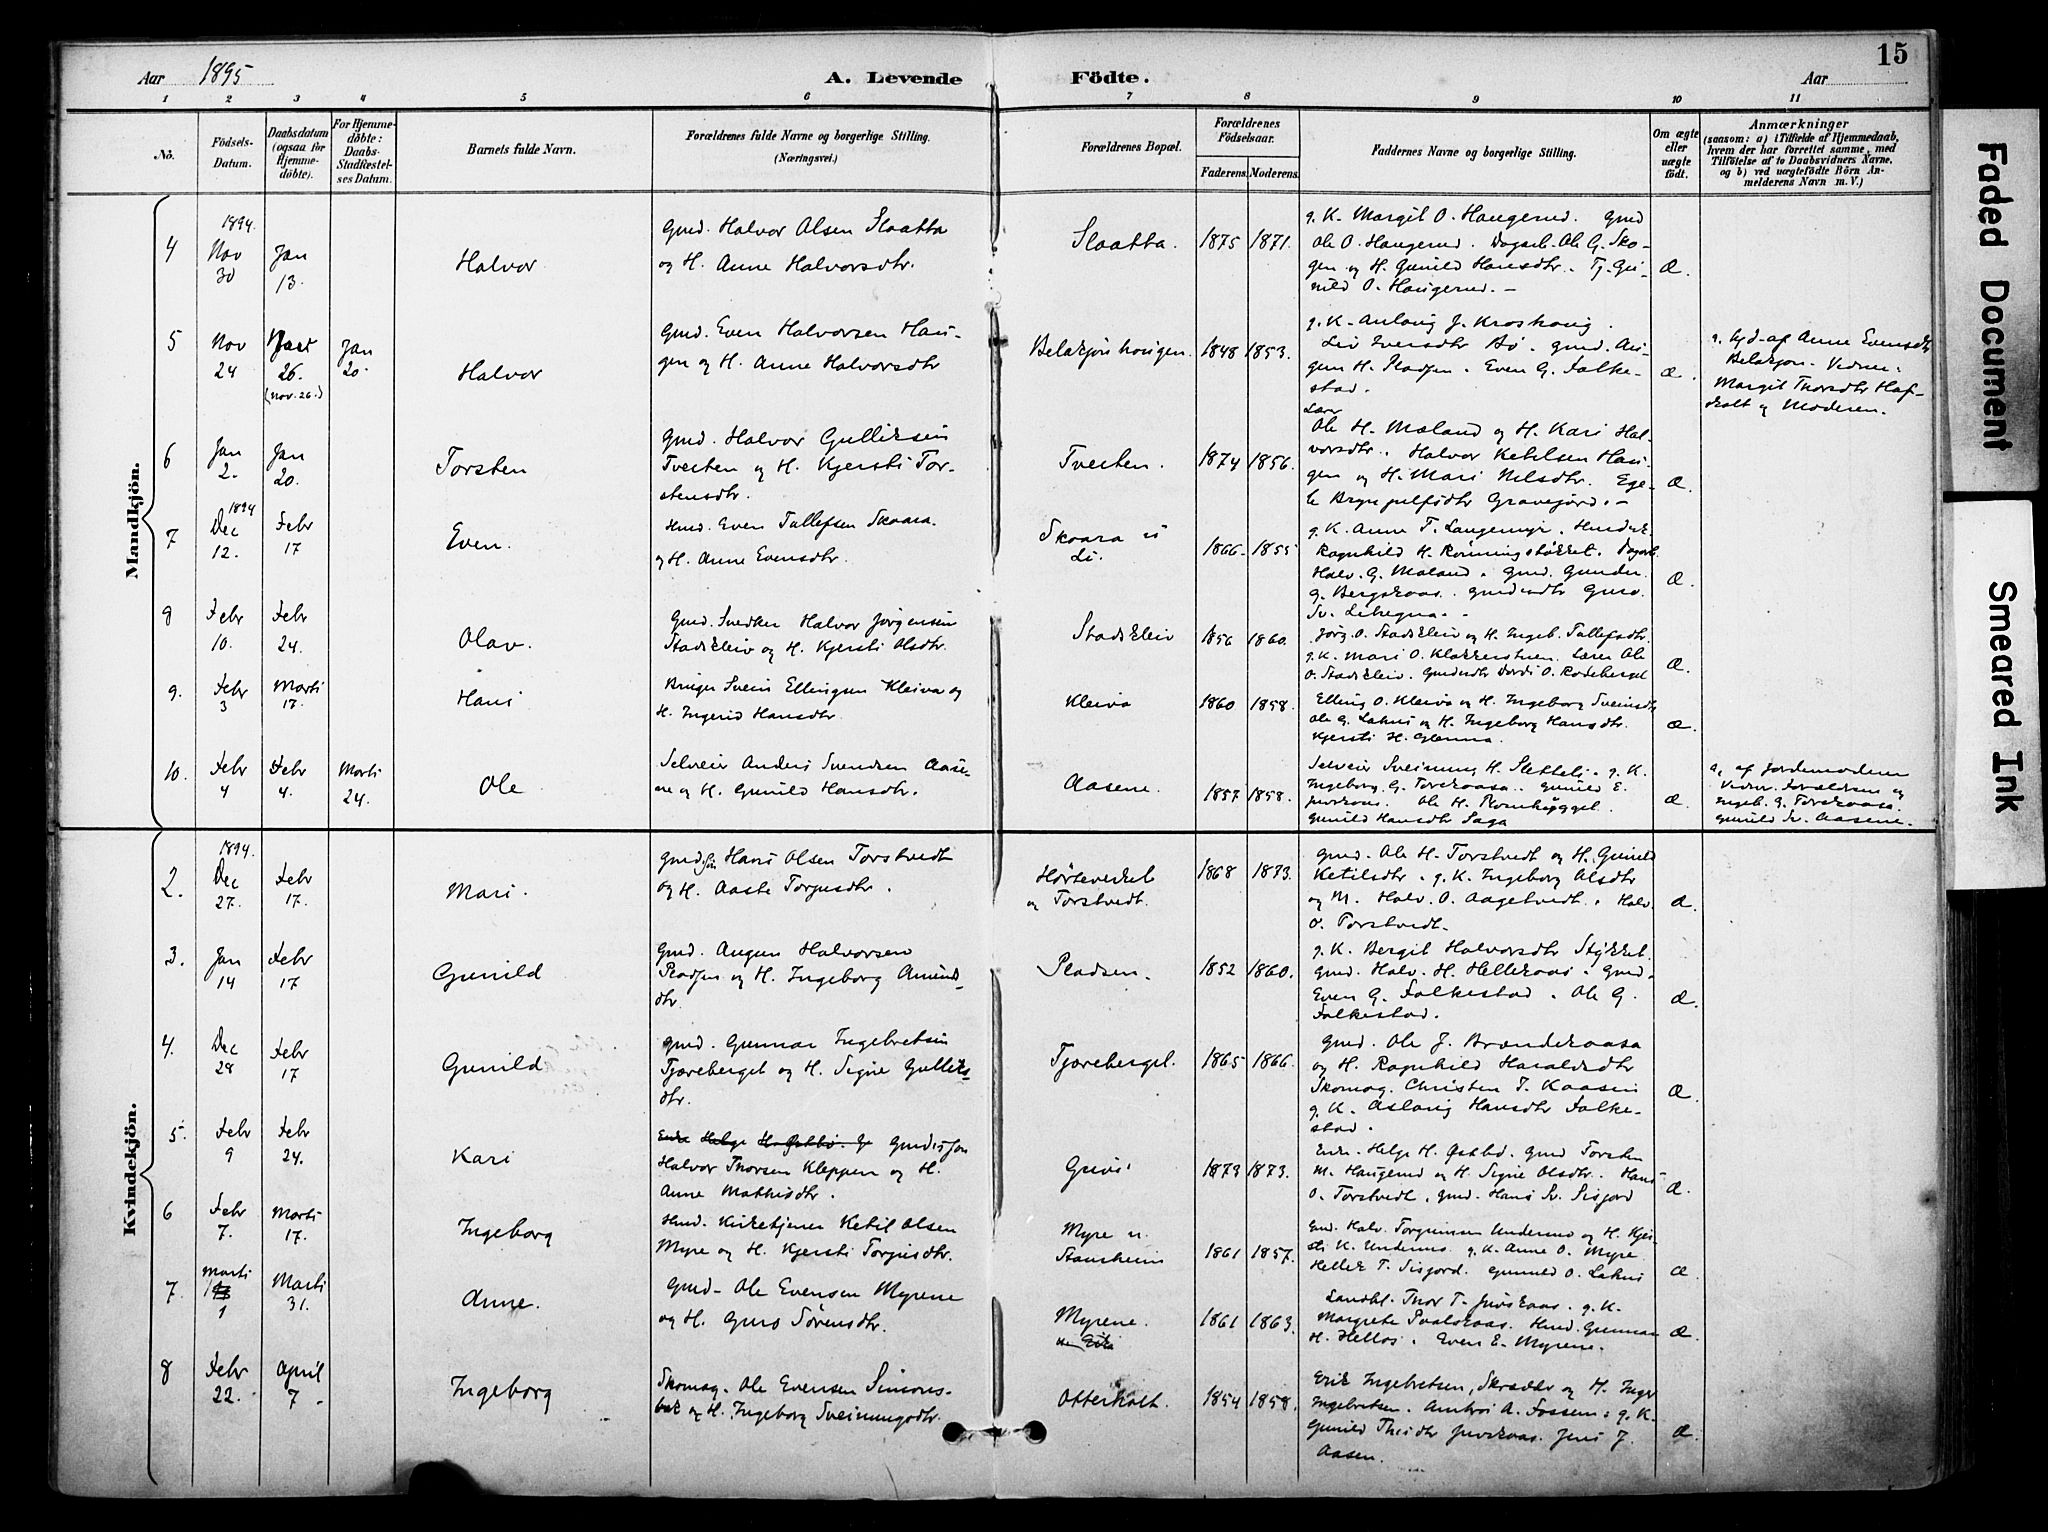 15
Aar 1895
A. Levende Födte.
Aar
1 2 3 4 5 6 7 8 9 10 11
Nö.
Födsels-Datum.
Daabsdatum (ogsaa for Hjemme-döbte).
For Hjemme-döbte: Daabs-Stadfæstel-ses Datum.
Barnets fulde Navn.
Forældrenes fulde Navne og borgerlige Stilling.
(Næringsvei.)
Forældrenes Bopæl.
Forældrenes Födselsaar.
Faderens. Moderens.
Faddernes Navne og borgerlige Stilling.
Om ægte eller uægte födt.
Anmærkninger
(saasom: a) i Tilfælde af Hjemmedaab, hvem der har forrettet samme, med Tilföielse af to Daabsvidners Navne, og b) ved uægtefödte Börn An-melderens Navn m. V.)
Mandkjön.
4 1894. Nov 30 Jan 13. Halvor
Gmd. Halvor Olsen Slaatta
og H. Anne Halvorsdtr.
Slaatta. 1875 1871.
g. K. Margit O. Haugerud. Gmd
Ole O. Haugerud. Dagarb. Ole G. Sko-
gen og H. Gunild Hansdtr. Tj. Gu-
nild O. Haugerud. –
Æ.
5 Nov 24 26. (Nov. 26.) Jan 20. Halvor
Gmd. Even Halvorsen Hau-
gen og H. Anne Halvorsdtr
1848 1853.
g. K. Anlaug J.
Liv Iversdtr Bø. Gmd. Au-
gen H. Pladsen. Even G. Falke-
stad.
Æ.
a. Gjd. af Anne Evensdtr
Vidner:
Margit Thorsdtr Haf-
og Moderen.
6 Jan 2. Jan 20. Torsten
Gmd. Halvor Gulliksen
Tveiten og H. Kjersti Tor-
stensdtr.
Tveiten. 1874 1856.
Lærer
Ole H. Moland og H. Kari Hal-
vorsdtr. Halvor Ketilsen Hau-
gen og H. Mari Nilsdtr.
Æ.
7 1894 Dec 12. Febr 17 Even.
Hmd. Even Tallefsen Skoara.
og H. Anne Evensdtr.
Skoara i
Li.
1866 1855
g. K. Anne T. Langemyr.
Ragnhild H. Rønningstøkket. Dagarb.
Halv. G. Moland. Gmd. Gunder
G. Bergskaas. Guro
Sv. Lihegna.
Æ.
8 Febr 10. Febr 24. Olav.
Gmd. Snedker Halvor Jørgensen
Stadskleiv og H. Kjersti Olsdtr.
Stadskleiv 1856 1860.
Jørg. O. Stadskleiv og H. Ingeb. Tallefsdtr.
g. K. Mari O. Klokkerstuen. Lærer Ole
O. Stadskleiv.
Æ.
9. Febr 3 Marti 17. Hans
Bruger Svein Ellingsen Kleiva og
H. Ingerid Hansdtr.
Kleiva 1860 1858.
Elling O. Kleiva og H. Ingeborg Sveinsdtr
Ole G. Lahus og H. Ingeborg Hansdtr.
Kjersti H. Glenna.
Æ.
10. Febr 4 Febr 4. Marti 24. Ole
Selveier Anders Svendsen Aase-
ne og H. Gunild Hansdtr.
Aasene. 1857 1858.
Selveier Sveinung H. Sletteli. g. K.
Ingeborg G. Torekaasa. Gunild E.
Ole H.
Gunild Hansdtr Saga
Æ.
a, af Jordemoderen
Vidner. Forældrene og
Ingeb. G. Torekaasa.
Gunild Sv. Aasene.
Kvindekjön.
2. 1894. Dec 27. Febr 17. Mari.
Gmdsøn Hans Olsen Torstvedt
og H. Aaste Torjusdtr.
Hørteverket
og Torstvedt.
1868 1873.
Gmd. Ole H. Torstvedt og H. Gunild
Ketilsdtr. g. K. Ingeborg Olsdtr
og M. Halv. O. Aagetvedt. Halv.
O. Torstvedt.
Æ.
3. Jan 14 Febr 17 Gunild
Gmd. Augun Halvorsen
Pladsen og H. Ingeborg Amund-
dtr.
Pladsen. 1852 1860.
g. K. Bergit Halvorsdtr Stykket.
Gmd. Halv. H. Hellekaas. Gmd.
Even G. Falkestad. Ole G.
Falkestad.
Æ.
4. Dec 28 Febr 17 Gunild
Gmd. Gunnar Ingebretsen
Tjæreberget og H. Signe Gulliks-
dtr.
Tjæreberget. 1865 1866.
Gmd. Ole J. Brændekaasa
og H. Ragnhild Haraldsdtr
Skomag. Christen T. Kaasen
g. K. Aslaug Hansdtr Falke-
stad.
Æ.
5. Febr 9 Febr 24. Kari
Enke Helge H. Østbø. Gmdsøn
Halvor Thorsen Kleppen og H.
Anne Mathisdtr.
1873 1873.
Helge H. Østbø. Gmd Torsten
M. Haugerud og H. Signe Olsdtr. Hans
O. Torstvedt, Gmd. Hans Sv. Sisjord
Æ.
6 Febr 7. Marti 17. Ingeborg
Hmd. Kirketjener Ketil Olsen
Myre og H. Kjersti Torjusdtr.
Myre u.
Stansheim
1861 1857.
Halv. Torgrimsen Underud og H. Kjer-
sti K. g. K. Anne O. Myre
Hellek T. Sisjord. Gunuld O. Lahus
Æ.
7. Marti 1 Marti 31. Anne.
Gmd. Ole Evensen Myrene
og H. Guro Sørensdtr.
Myrene.
1861 1863.
Landhl. Thor T. g. K.
Margrete Hmd. Gunnar
H. Hellos. Even E. Myrene.
Æ.
8 Febr 22. April 7. Ingeborg
Skomag. Ole Evensen Simons-
bak og H. Ingeborg Sveinungsdtr.
Otterholt. 1854 1858.
Erik Ingebretsen, Skrædder og H. Inger
Ingebretsen. Ambros A. Fossen. g. K.
Gunild Jens J.
Aasen.
Æ.
Faded Document
Smeared Ink